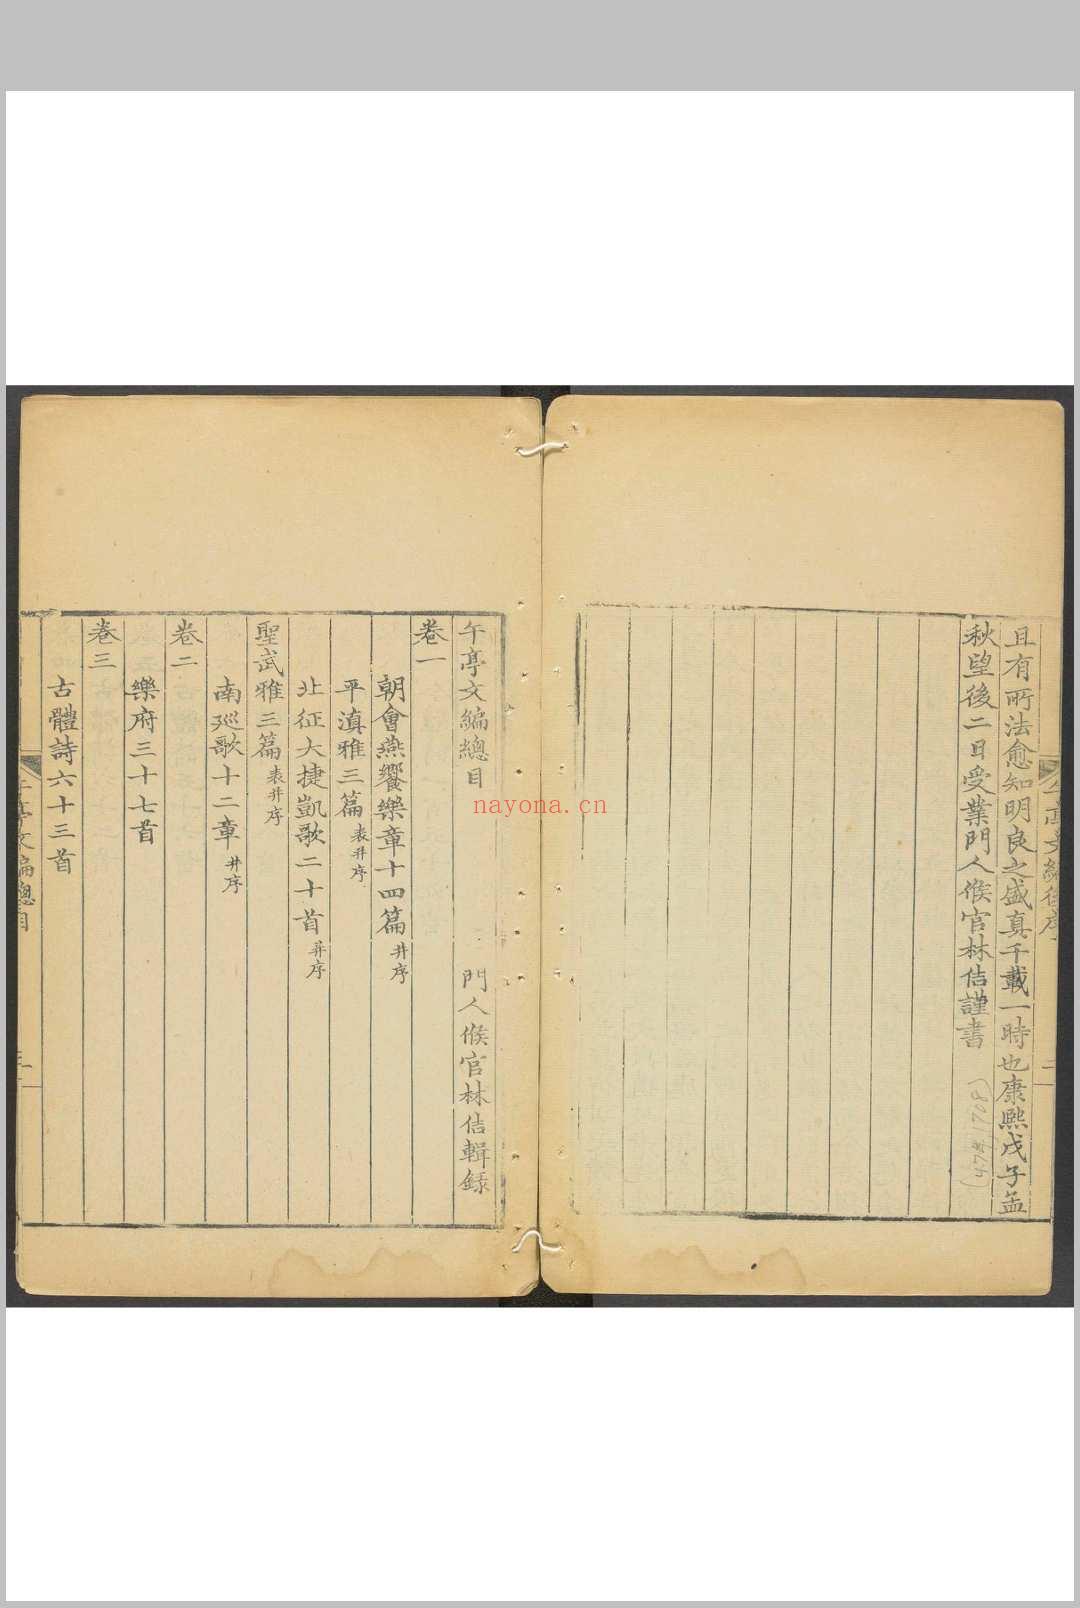 且有所法愈知明良之盛真千載一時也康熙戊子孟
秋望後二日受業門人候官林佶謹書
(47年1708)
午亭文編總目
門人候官林佶輯錄
卷一
朝會燕饗樂章十四篇并序
平滇雅三篇表并序
北征大捷凱歌二十首并序
聖武雅三篇表并序
南廵歌十二章并序
卷二
樂府三十七首
卷三
古體詩六十三首
午亭文編總目
一
nayona.cn